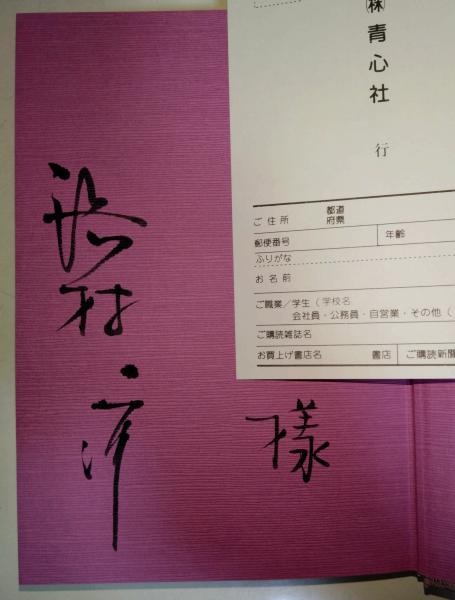 ㈱青心社
行
ご住所 都道府県
郵便番号 年齢
ふりがな
お名前
ご職業／学生（学校名
会社員・公務員・自営業・その他（
ご購読雑誌名
お買上げ書店名 書店 ご購読新聞
村
様